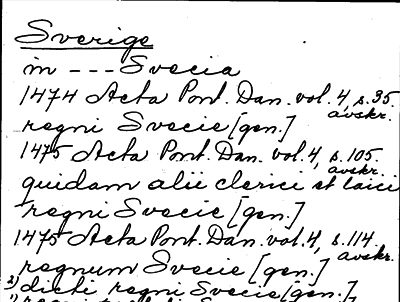 Sverige
in --- Svecia
1474 Acta Pont. Dan. vol. 4, s. 35.
avskr.
regni Svecie [gen.]
1475 Acta Pont. Dan. vol. 4, s. 105.
avskr.
quidam alii clerici et laici
regni Svecie [gen.]
1475 Acta Pont. Dan. vol. 4, s. 114.
avskr.
regnum Svecie [gen.]
2) dicti regni Svecie [gen.]